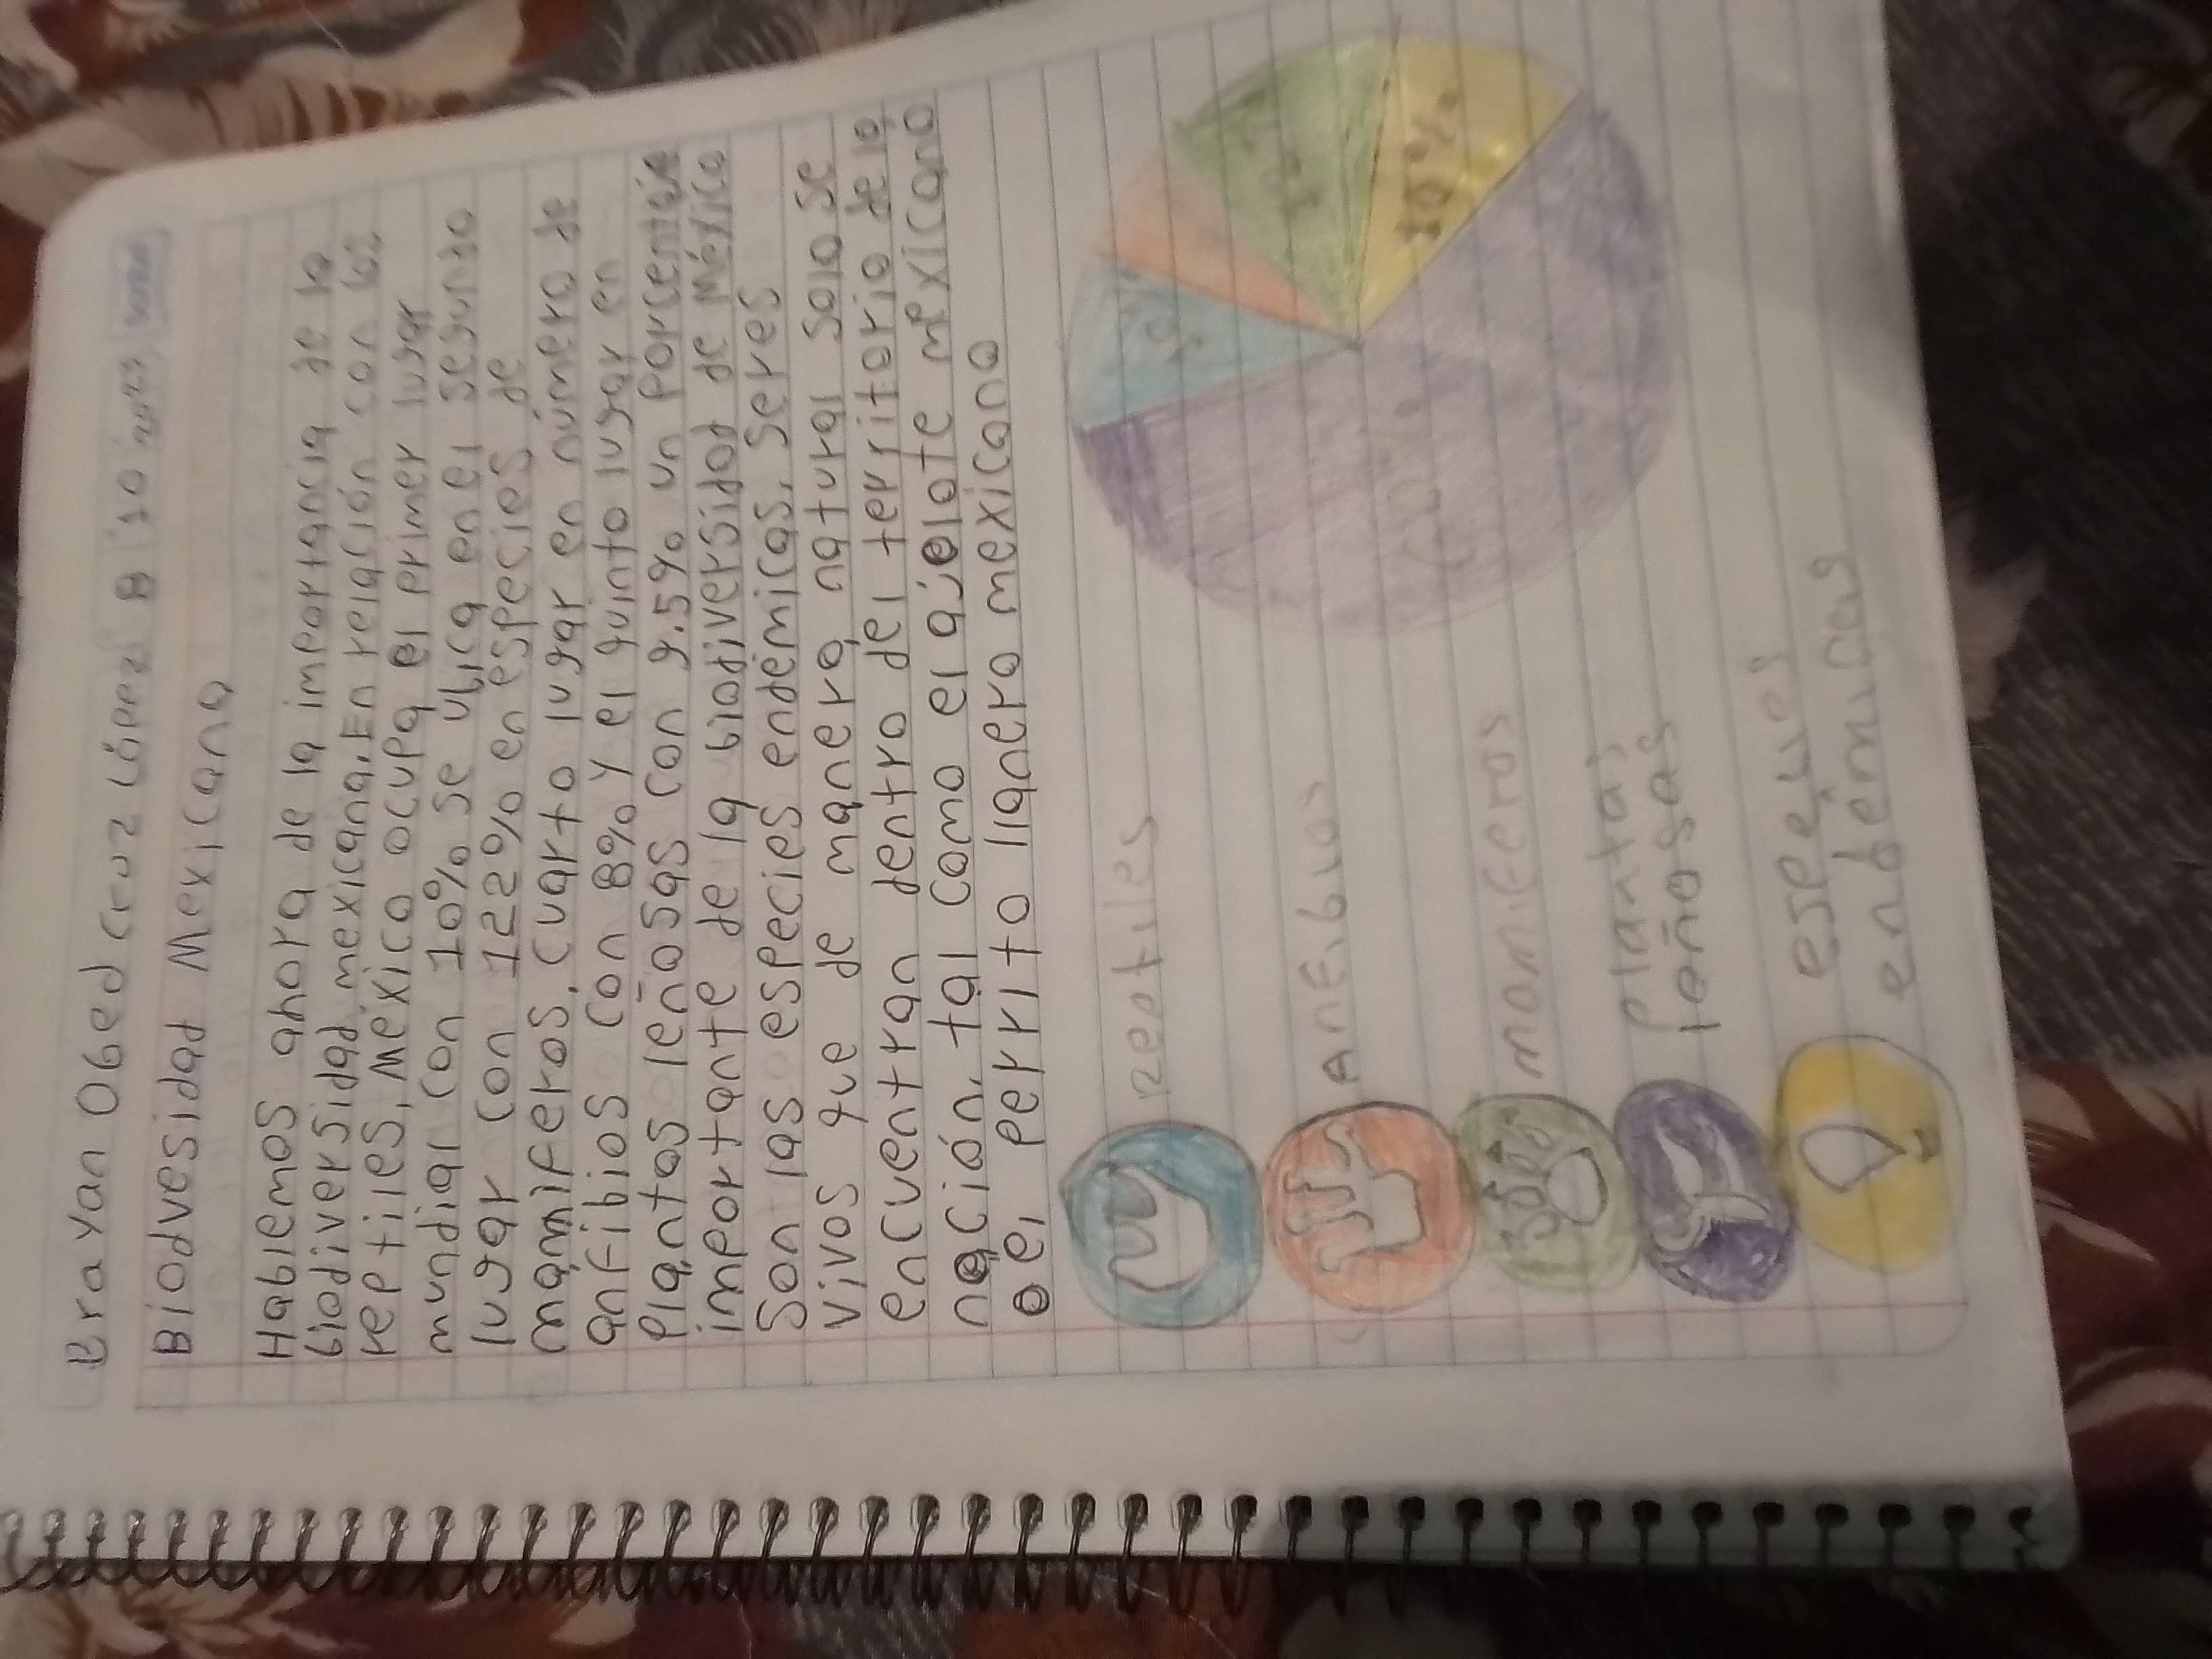 Brayan Obed Cruz López 8/10/2023
Biodvesidad Mexicana
Hablemos ahora de la importancia de la
biodiversidad mexicana. En relación con los
reptiles, México ocupa el primer lugar
mundial con 10% se ubica en el segundo
lugar con 122% en especies de
mamíferos, cuarto lugar en número de
anfibios con 8% y el quinto lugar en
Plantas leñosas con 9.5% un porcentaje
importante de la biodiversidad de México
Son las especies endémicas, seres
vivos que de manera natural solo se
encuentran dentro del territorio de la
nación, tal como el ajolote mexicano
o el perrito llanero mexicano
reptiles
Anfibios
mamiferos
plantas
leñosas
especies
endémicas
10%